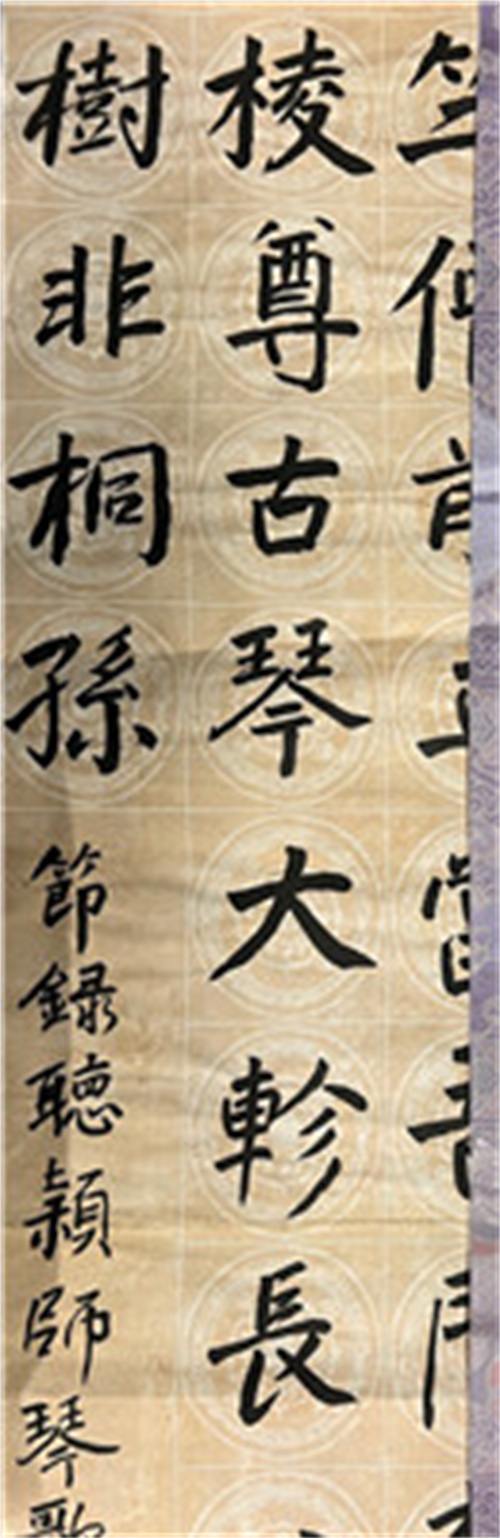 竺
棱尊古琴大軫長
樹非桐孫
節錄聽頴師琴歌